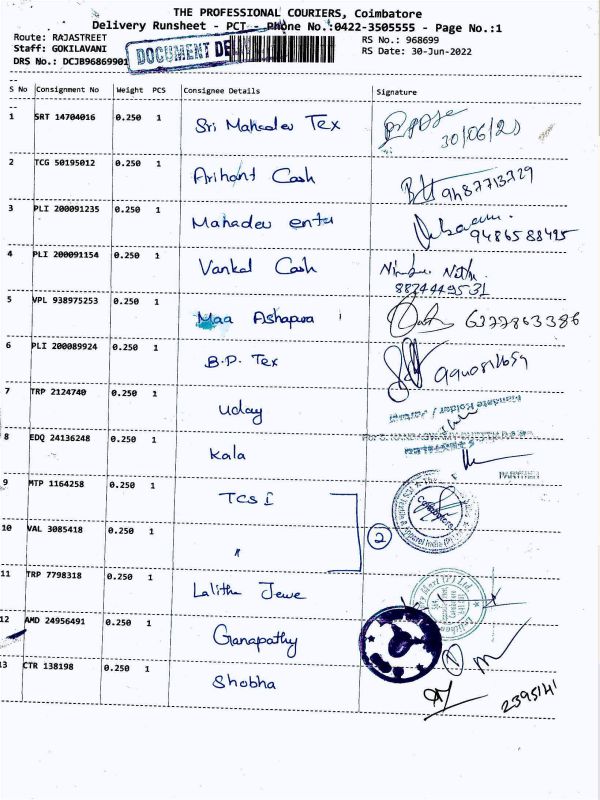 THE PROFESSIONAL COURIERS, Coimbatore
Delivery Runsheet - PCT - Phone No.:0422-3505555 - Page No.:1
Route: RAJASTREET
RS No.: 968699
Staff: GOKILAVANI
RS Date: 30-Jun-2022
DRS No.: DCJB96869901
DOCUMENT DE
S No Consignment No Weight PCS Consignee Details Signature
1 SRT 14704016 0.250 1 Sri Mahadev Tex
30/06/23
2 TCG 50195012 0.250 1 Arihant Cash
9487713729
3 PLI 200091235 0.250 1 Mahadev enter
9486588425
4 PLI 200091154 0.250 1 Vankal Cash
8824449531
5 VPL 938975253 0.250 1 Maa Ashapura 6377863386
6 PLI 200089924 0.250 1 B.P. Tex
7 TRP 2124740 0.250 1 Uday
8 EDQ 24136248 0.250 1 Kala
PARTNER
9 MTP 1164258 0.250 1 TCS I
Coimbatore
10 VAL 3085418 0.250 1 "
2
11 TRP 7798318 0.250 1 Lalitha Jewe
12 AMD 24956491 0.250 1 Ganapathy
1
13 CTR 138198 0.250 1 Shobha
2395141